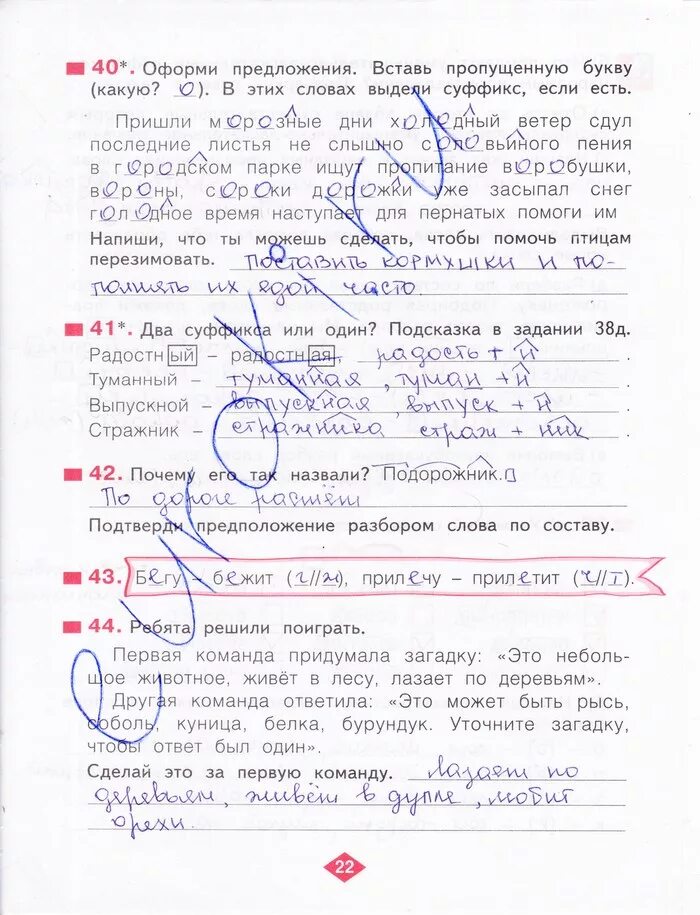 40*. Оформи предложения. Вставь пропущенную букву
(какую? о). В этих словах выдели суффикс, если есть.
Пришли морозные дни холодный ветер сдул
последние листья не слышно соловьиного пения
в городском парке ищут пропитание воробушки,
вороны, сороки дорожки уже засыпал снег
голодное время наступает для пернатых помоги им
Напиши, что ты можешь сделать, чтобы помочь птицам
перезимовать. Поставить кормушки и по-
полнять их едой часто
41*. Два суффикса или один? Подсказка в задании 38д.
Радостный – радостная, радость + н .
Туманный – туманная, туман + н .
Выпускной – выпускная, выпуск + н .
Стражник – стражника страж + ник .
42. Почему его так назвали? Подорожник.
По дороге растёт
Подтверди предположение разбором слова по составу.
43. Бегу – бежит (г//ж), прилечу – прилетит (ч//т).
44. Ребята решили поиграть.
Первая команда придумала загадку: «Это неболь-
шое животное, живёт в лесу, лазает по деревьям».
Другая команда ответила: «Это может быть рысь,
соболь, куница, белка, бурундук. Уточните загадку,
чтобы ответ был один».
Сделай это за первую команду. Лазает по
деревьям, живёт в дупле, любит
орехи.
22